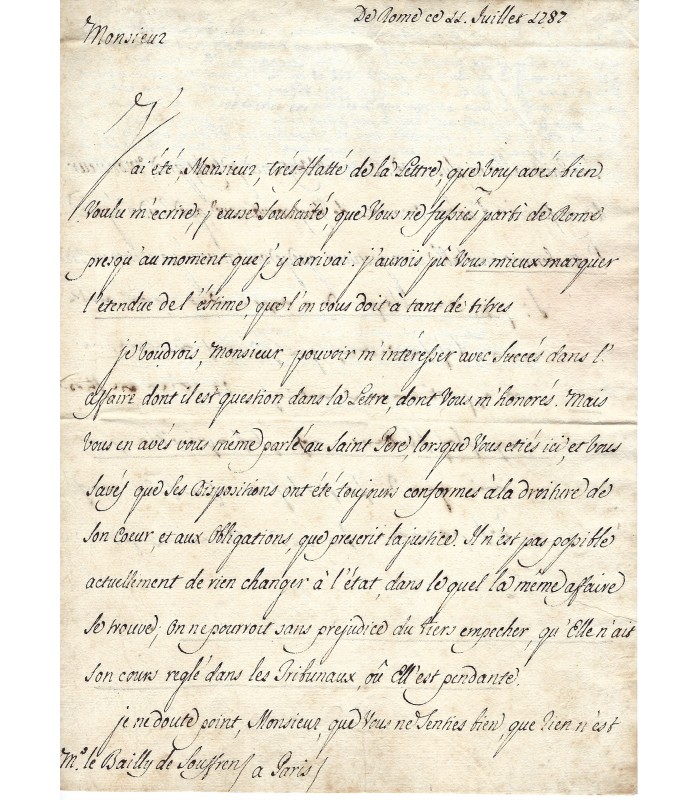 De Rome ce 11. Juillet 1787
Monsieur
J'ai été, Monsieur, trés-flatté de la Lettre, que Vous avés bien
Voulu m'ecrire, j'eusse souhaité, que Vous ne fussies parti de Rome
presqu'au moment que j'y arrivai: j'aurois pû Vous mieux marquer
l'etendue de l'éstime, que l'on vous doit à tant de titres
je voudrois, Monsieur, pouvoir m'intéresser avec succés dans l'
affaire dont il est question dans la Lettre, dont Vous m'honorés. Mais
vous en avés vous même parlé au Saint Pere, lorsque Vous etiés ici, et Vous
savés que ses Dispositions ont été toujours conformes à la droiture de
son Coeur, et aux Obligations, que prescrit la justice. Il n'est pas possible
actuellement de rien changer à l'état, dans le quel la même affaire
se trouve; On ne pourroit sans prejudice du tiers empecher, qu'Elle n'ait
son cours reglé dans les Tribunaux, oû Ell'est pendante.
je ne doute point, Monsieur, que Vous ne senties bien, que rien n'est
Mr. le Bailly de Souffren a Paris